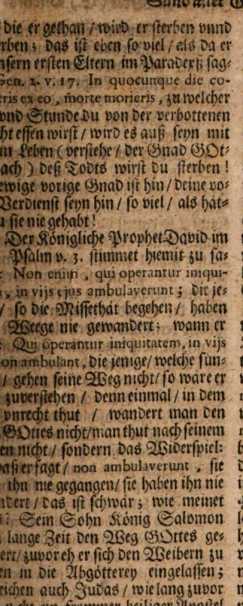 die er gethan / wird er sterben vnnd
rben; das ist eben so viel / als da er
nsern ersten Eltern im Paradeyß sag-
Gen. 2. v. 17. In quocunque die co-
ris ex eo, morte morieris, zu welcher
vnd Stunde du von der verbottenen
ht essen wirst / wird es auß seyn mit
m Leben (verstehe / der Gnad GOt-
ach) deß Todts wirst du sterben!
ewige vorige Gnad ist hin / deine vo-
Verdienst seyn hin / so viel / als hät-
u sie nie gehabt!
Der Königliche Prophet David im
Psalm v. 3. stimmet hiemit zu sa-
Non enim, qui operantur iniqui-
, in vijs ejus ambulaverunt; die je-
/ so die Missethat begehen / haben
Weege nie gewandert; wann er
Qui operantur iniquitatem, in vijs
on ambulant, die jenige / welche sün-
/ gehen seine Weg nicht / so ware er
zuverstehen / denn einmal / in dem
vnrecht thut / wandert man den
GOttes nicht / man thut nach seinem
en nicht / sondern das Widerspiel:
daß er sagt / non ambulaverunt, sie
ihn nie gegangen / sie haben ihn nie
ndert / das ist schwär; wie meinet
? Sein Sohn König Salomon
lange Zeit den Weg GOttes ge-
ert / zuvor eh er sich den Weibern zu
en in die Abgötterey eingelassen;
eichen auch Judas / wie lang zuvor